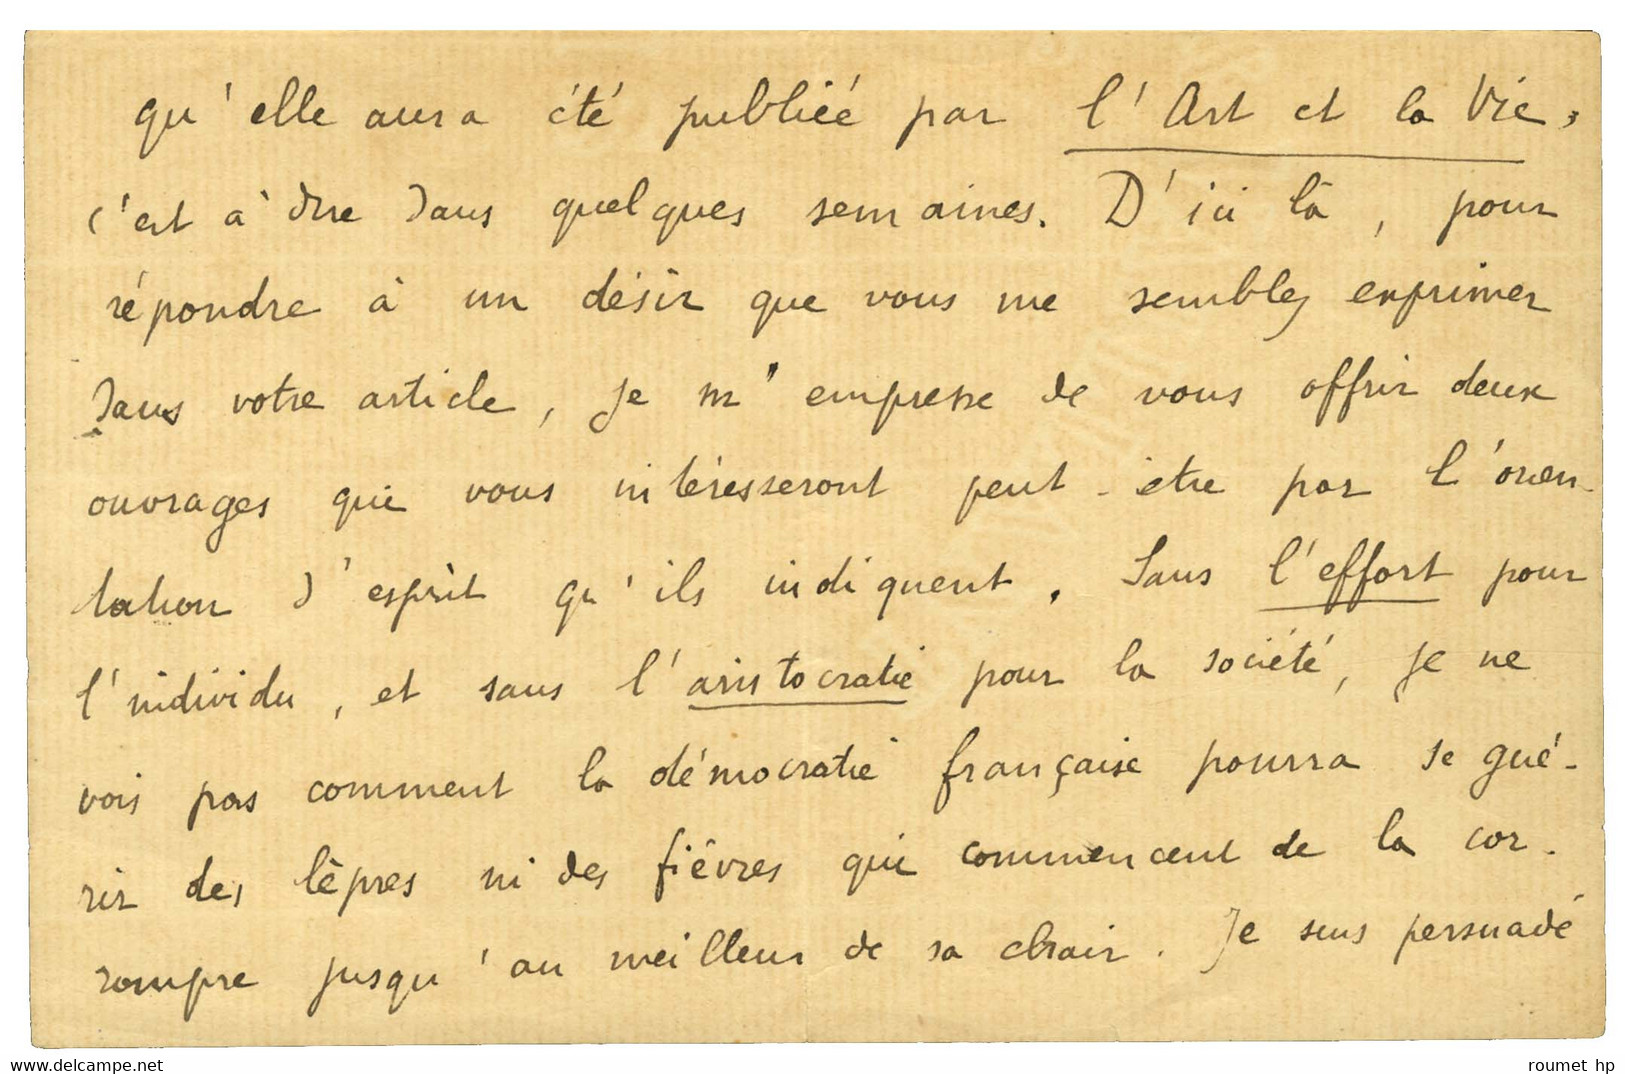 qu'elle aura été publiée par l'Art et la Vie,
c'est à dire dans quelques semaines. D'ici là, pour
répondre à un désir que vous me semblez exprimer
dans votre article, je m'empresse de vous offrir deux
ouvrages qui vous intéresseront peut-être par l'orien-
tation d'esprit qu'ils indiquent. Sans l'effort pour
l'individu, et sans l'aristocratie pour la société, je ne
vois pas comment la démocratie française pourra se gué-
rir des lèpres ni des fièvres qui commencent de la cor-
rompre jusqu'au meilleur de sa chair. Je suis persuadé
www.delcampe.net
roumet hp